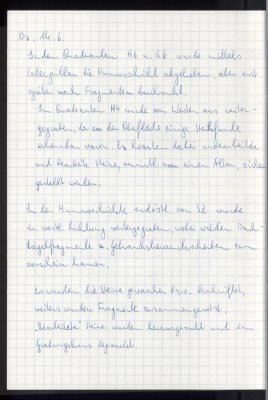 Do. 14.6.
In den Quadranten H6 u. G6 wurde mittels
Caterpillar die Humusschicht abgehoben, aber erst
später nach Fragmenten durchsucht.
Im Quadranten H4 wurde vom Westen aus weiter-
gegraben, da an der Oberfläche einige Steinfunde
erkennbar waren. Es konnten dabei unbearbeitete
und bearbeitete Steine, vermutl. von einem Altar, sicher
gestellt werden.
In der Humusschichte südöstl. von S2 wurde
in westl. Richtung weitergegraben, wobei wieder Dach-
ziegelfragmente u. Gebrauchskeramikscherben zum
vorschein kamen.
Es wurden die Steine gewaschen bzw. beschriftet,
weiters wurden Fragmente zusammengesetzt.
"Bearbeitete" Steine wurden herausgesucht und im
Grabungshaus deponiert.